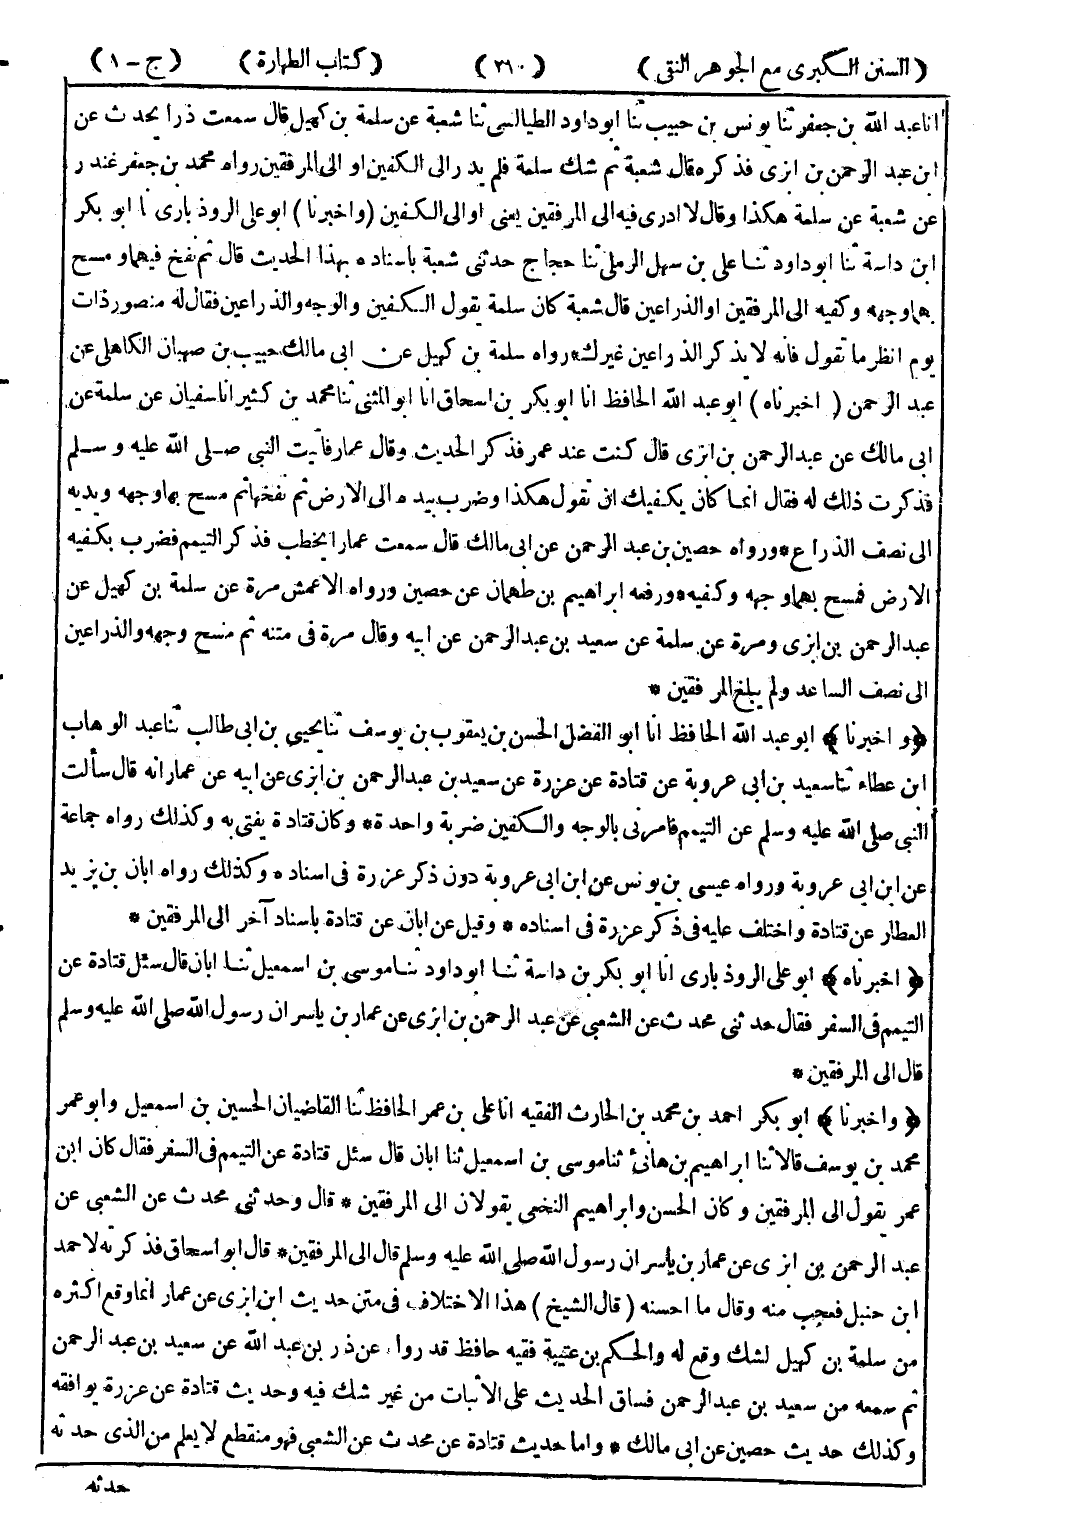 (السنن الكبرى مع الجوهر النقى) (٢١٠) (كتاب الطهارة) (ج-١)
انا عبد الله بن جعفر ثنا يونس بن حبيب ثنا ابو داود الطيالسى ثنا شعبة عن سلمة بن كهيل قال سمعت ذرا يحدث عن
ابن عبد الرحمن بن ابزى فذكره قال شعبة ثم شك سلمة فلم يدر الى الكفين او الى المرفقين رواه محمد بن جعفر غندر
عن شعبة عن سلمة هكذا وقال لا ادرى فيه الى المرفقين يعنى او الى الكفين (واخبرنا) ابو على الروذبارى انا ابو بكر
ابن داسة ثنا ابو داود ثنا على بن سهل الرملى ثنا حجاج حدثنى شعبة باسناده بهذا الحديث قال ثم نفخ فيها ومسح
بها وجهه وكفيه الى المرفقين او الذراعين قال شعبة كان سلمة يقول الكفين والوجه والذراعين فقال له منصور ذات
يوم انظر ما تقول فانه لا يذكر الذراعين غيرك * رواه سلمة بن كهيل عن ابى مالك حبيب بن صهبان الكاهلى عن
عبد الرحمن (اخبرناه) ابو عبد الله الحافظ انا ابو بكر بن اسحاق انا ابو المثنى ثنا محمد بن كثير انا سفيان عن سلمة عن
ابى مالك عن عبد الرحمن بن ابزى قال كنت عند عمر فذكر الحديث وقال عمار فأتيت النبى صلى الله عليه وسلم
فذكرت ذلك له فقال انما كان يكفيك ان تقول هكذا وضرب بيده الى الارض ثم نفخها ثم مسح بها وجهه ويديه
الى نصف الذراع * ورواه حصين بن عبد الرحمن عن ابى مالك قال سمعت عمارا يخطب فذكر التيمم فضرب بكفيه
الارض فمسح بهما وجهه وكفيه * ورفعه ابراهيم بن طهمان عن حصين ورواه الاعمش مرة عن سلمة بن كهيل عن
عبد الرحمن بن ابزى ومرة عن سلمة عن سعيد بن عبد الرحمن عن ابيه وقال مرة فى متنه ثم مسح وجهه والذراعين
الى نصف الساعد ولم يبلغ المرفقين *
﴿و اخبرنا﴾ ابو عبد الله الحافظ انا ابو الفضل الحسن بن يعقوب بن يوسف ثنا يحيى بن ابى طالب ثنا عبد الوهاب
ابن عطاء ثنا سعيد بن ابى عروبة عن قتادة عن عزرة عن سعيد بن عبد الرحمن بن ابزى عن ابيه عن عمار انه قال سألت
النبى صلى الله عليه وسلم عن التيمم فامرنى بالوجه والكفين ضربة واحدة * وكان قتادة يفتى به وكذلك رواه جماعة
عن ابن ابى عروبة ورواه عيسى بن يونس عن ابن ابى عروبة دون ذكر عزرة فى اسناده * وكذلك رواه ابان بن يزيد
العطار عن قتادة واختلف عليه فى ذكر عزرة فى اسناده * وقيل عن ابان عن قتادة باسناد آخر الى المرفقين *
﴿اخبرناه﴾ ابو على الروذبارى انا ابو بكر بن داسة ثنا ابو داود ثنا موسى بن اسمعيل ثنا ابان قال سئل قتادة عن
التيمم فى السفر فقال حدثنى محدث عن الشعبى عن عبد الرحمن بن ابزى عن عمار بن ياسر ان رسول الله صلى الله عليه وسلم
قال الى المرفقين *
﴿و اخبرنا﴾ ابو بكر احمد بن محمد بن الحارث الفقيه انا على بن عمر الحافظ ثنا القاضيان الحسين بن اسمعيل وابو عمر
محمد بن يوسف قالا ثنا ابراهيم بن هانئ ثنا موسى بن اسمعيل ثنا ابان قال سئل قتادة عن التيمم فى السفر فقال كان ابن
عمر يقول الى المرفقين وكان الحسن وابراهيم النخعى يقولان الى المرفقين * قال وحدثنى محدث عن الشعبى عن
عبد الرحمن بن ابزى عن عمار بن ياسر ان رسول الله صلى الله عليه وسلم قال الى المرفقين * قال ابو اسحاق فذكرته لاحمد
ابن حنبل فعجب منه وقال ما احسنه (قال الشيخ) هذا الاختلاف فى متن حديث ابن ابزى عن عمار انما وقع اكثره
من سلمة بن كهيل لشك وقع له والحكم بن عتيبة فقيه حافظ قد رواه عن ذر بن عبد الله عن سعيد بن عبد الرحمن
ثم سمعه من سعيد بن عبد الرحمن فساق الحديث على الاثبات من غير شك فيه وحديث قتادة عن عزرة يوافقه
وكذلك حديث حصين عن ابى مالك * واما حديث قتادة عن محدث عن الشعبى فهو منقطع لا يعلم من الذى حدثه
حدثه